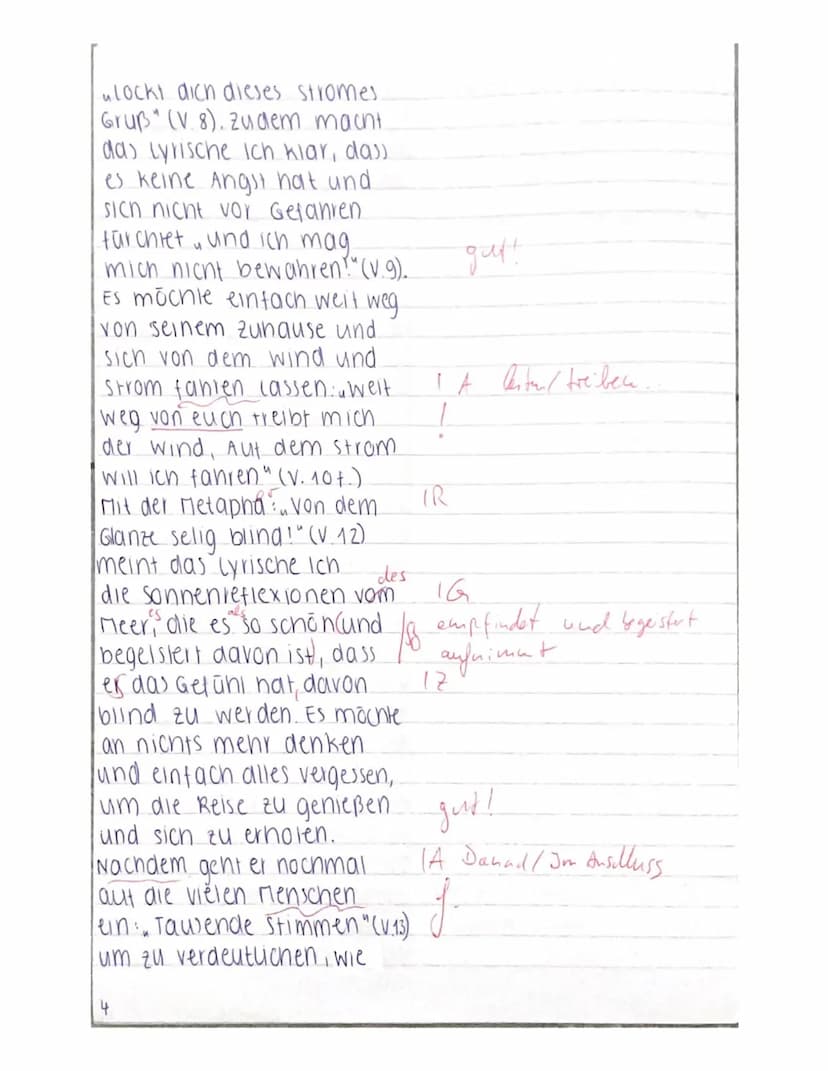 „lockt dich dieses Stromes
Gruß" (V. 8). Zudem macht
das lyrische Ich klar, dass
es keine Angst hat und
sich nicht vor Gefahren
fürchtet „und ich mag
mich nicht bewahren!" (V. 9). gut!
Es möchte einfach weit weg
von seinem zuhause und
sich von dem Wind und
Strom fahren lassen: „Weit I A /treiben..
weg von euch treibt mich !
der Wind, Auf dem Strom
will ich fahren" (V. 10f.)
Mit der Metapher: „Von dem IR
Glanze selig blind!" (V. 12)
meint das lyrische Ich
die Sonnenreflexionen vom des IG
Meer, die es so schön (und es als empfindet und begeistert
begeistert davon ist), dass aufnimmt
es das Gefühl hat, davon IZ
blind zu werden. Es möchte
an nichts mehr denken
und einfach alles vergessen,
um die Reise zu genießen gut!
und sich zu erholen.
Nachdem geht er nochmal IA Danach/Im Anschluss
auf die vielen Menschen f.
ein: „Tausende Stimmen" (V. 13)
um zu verdeutlichen, wie
4